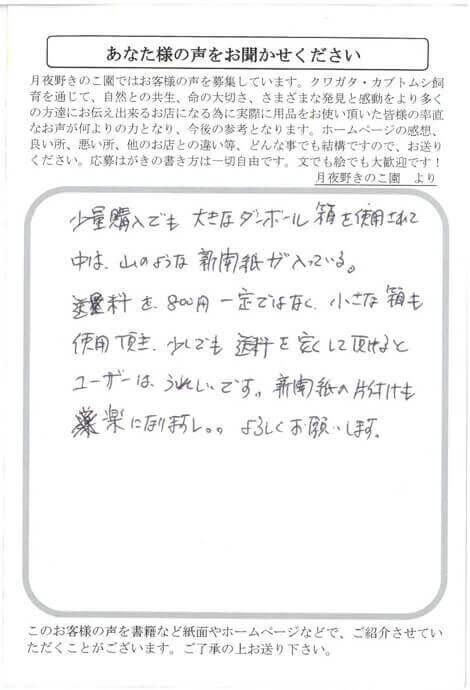 あなた様の声をお聞かせください
月夜野きのこ園ではお客様の声を募集しています。クワガタ・カブトムシ飼
育を通じて、自然との共生、命の大切さ、さまざまな発見と感動をより多く
の方達にお伝え出来るお店になる為に実際に用品をお使い頂いた皆様の率直
なお声が何よりの力となり、今後の参考となります。ホームページの感想、
良い所、悪い所、他のお店との違い等、どんな事でも結構ですので、お送り
ください。応募はがきの書き方は一切自由です。文でも絵でも大歓迎です！
月夜野きのこ園　より
少量購入でも 大きなダンボール 箱を使用されて
中は、山のような 新聞紙が入っている。
送料を、800円一定ではなく、小さな箱も
使用頂き、少しでも 送料を安くして頂けると
ユーザーは、うれしいです。新聞紙の片付けも
楽になりますし。。よろしくお願いします。
このお客様の声を書籍など紙面やホームページなどで、ご紹介させてい
ただくことがございます。ご了承の上お送り下さい。